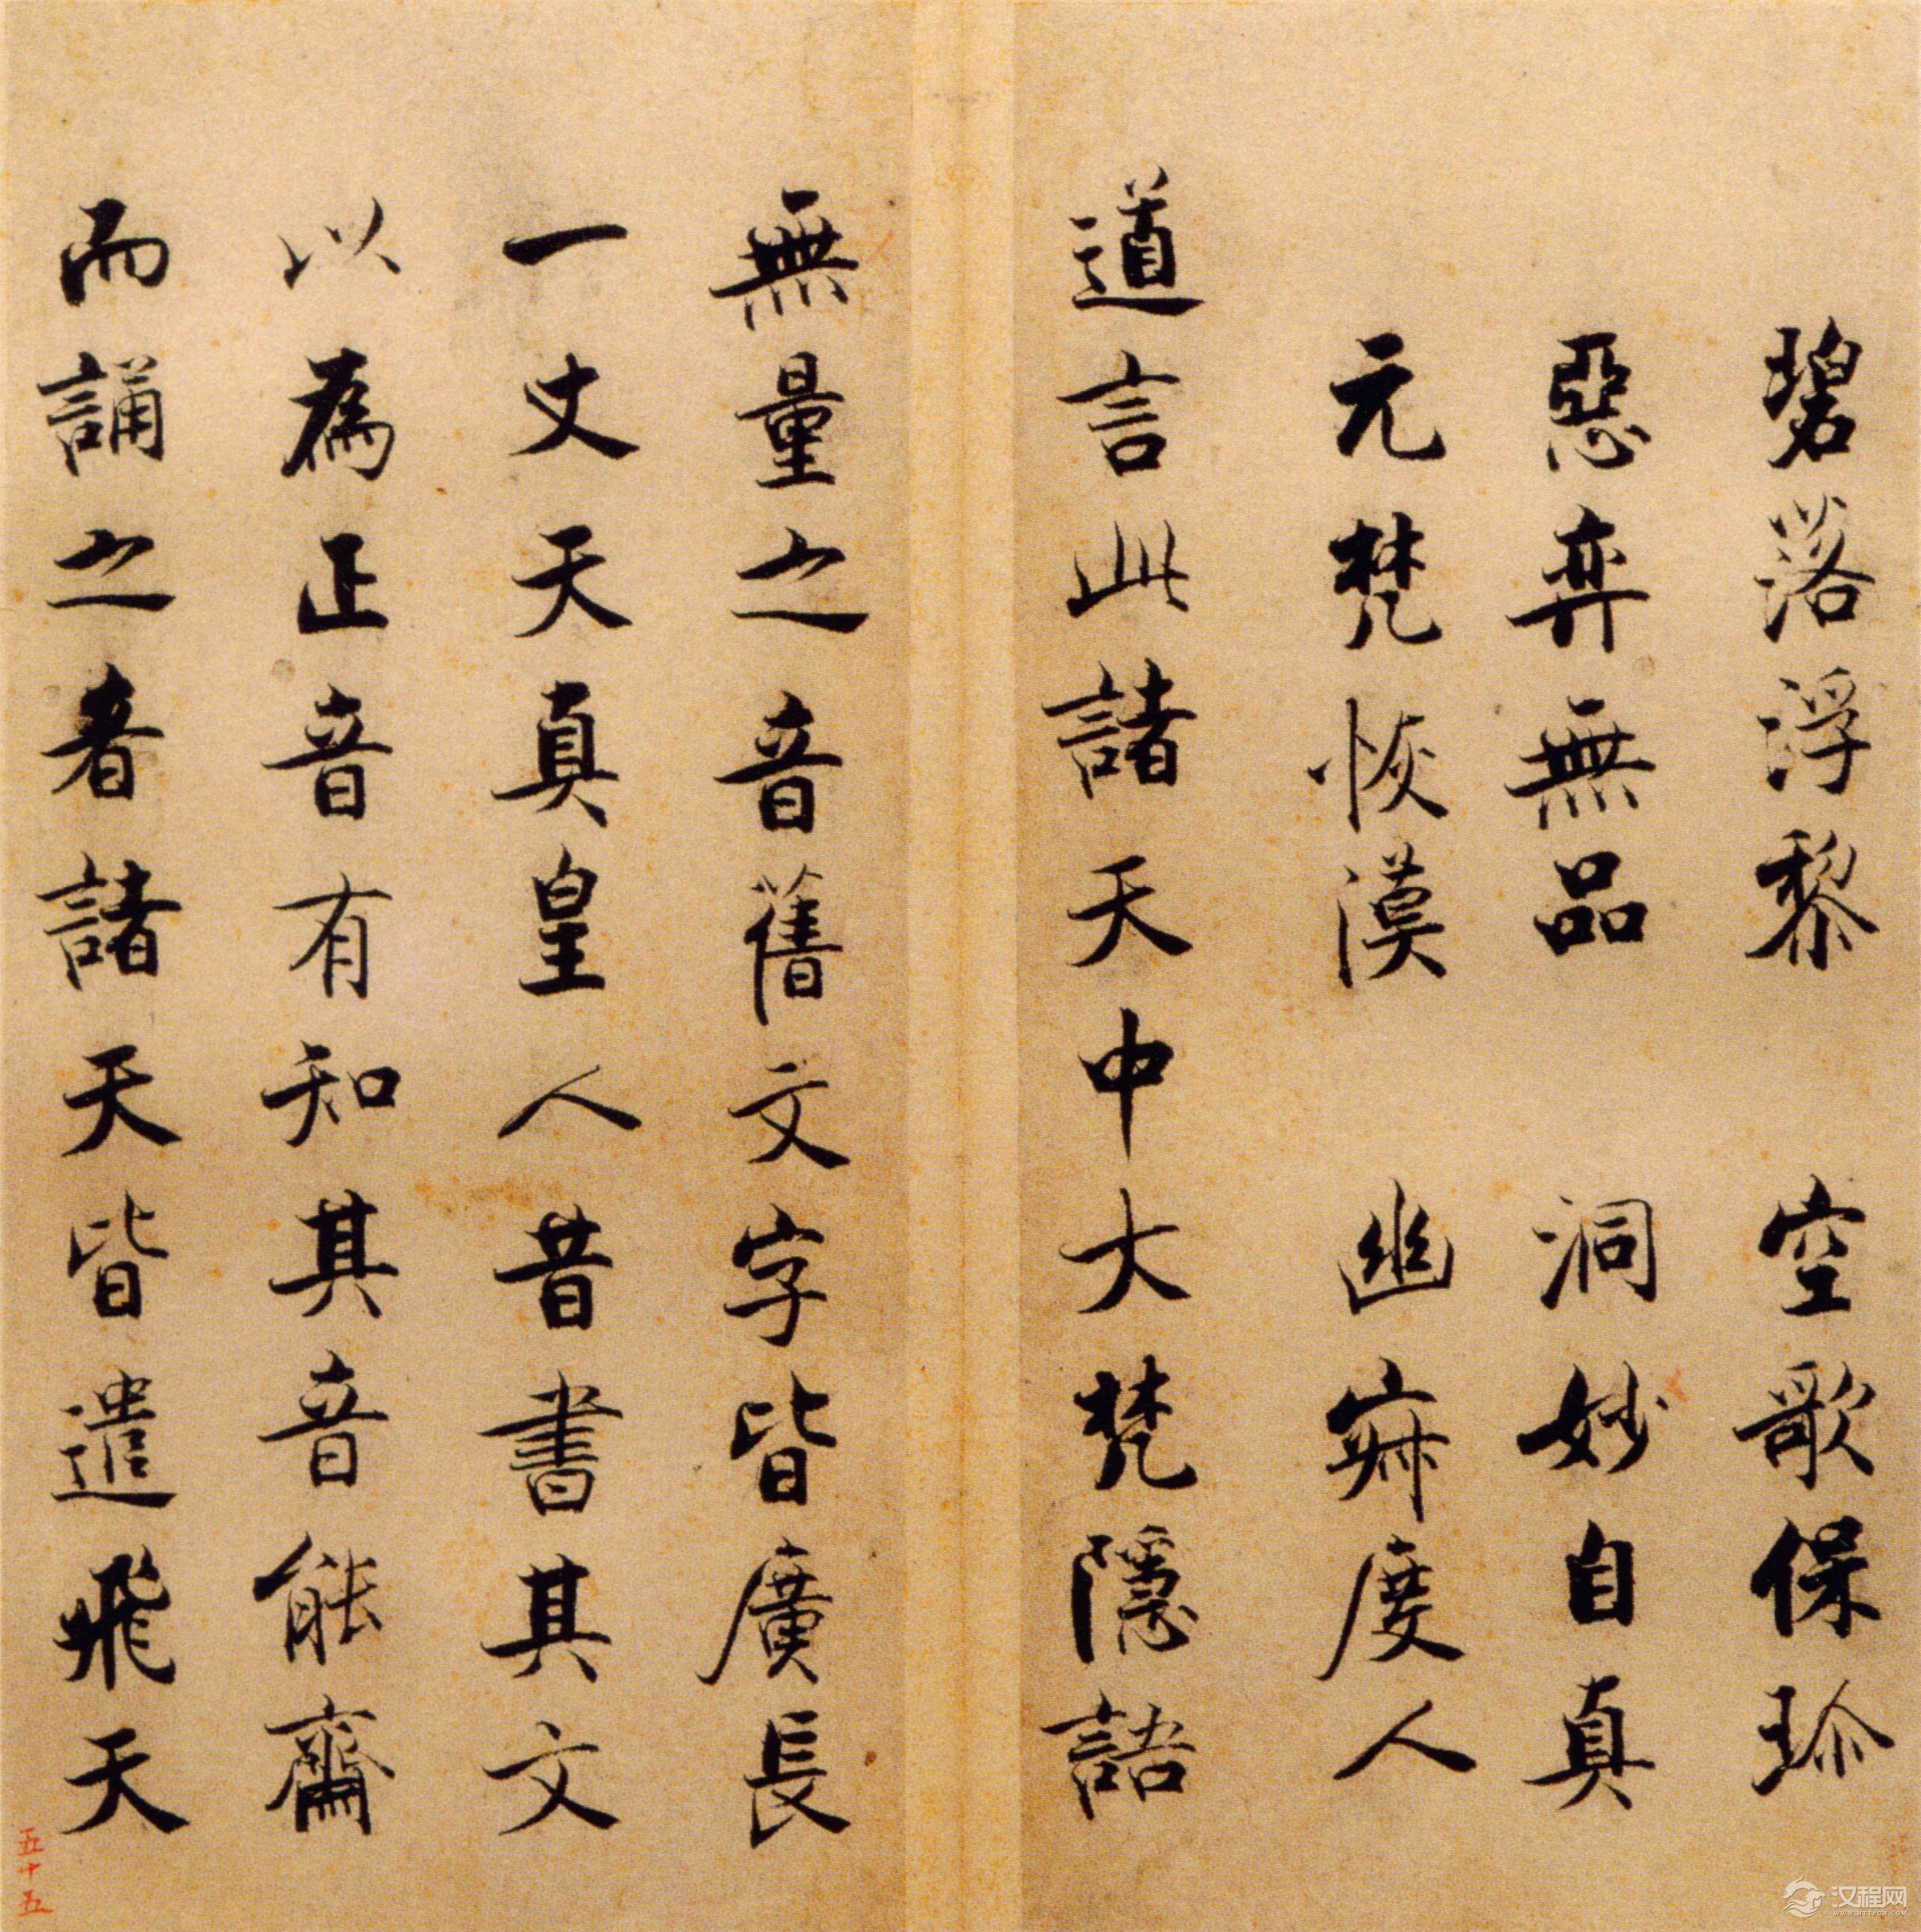 碧落浮黎　空歌保珎
惡弈無品　洞妙自真
元梵恢漠　幽寂度人
道言此諸天中大梵隱語
無量之音舊文字皆廣長
一丈天真皇人昔書其文
以為正音有知其音能齋
而誦之者諸天皆遣飛天
五十五
汉程网
WWW.HTTPCN.COM